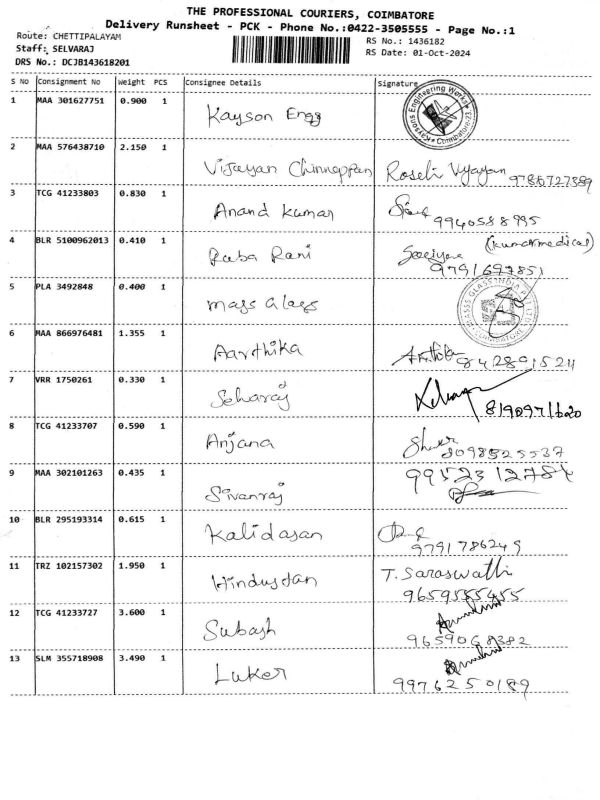 THE PROFESSIONAL COURIERS, COIMBATORE
Delivery Runsheet - PCK - Phone No.:0422-3505555 - Page No.:1
Route: CHETTIPALAYAM
RS No.: 1436182
Staff: SELVARAJ
RS Date: 01-Oct-2024
DRS No.: DCJB143618201
S No Consignment No Weight PCS Consignee Details Signature
1 MAA 301627751 0.900 1 Kayson Engg
2 MAA 576438710 2.150 1 Vijayan Chinnappan Roseli Vijayan
3 TCG 41233803 0.830 1 Anand Kumar
9940588995
4 BLR 5100962013 0.410 1 Baba Rani (Kumar medical)
9791697851
5 PLA 3492848 0.400 1 mass Glass
6 MAA 866976481 1.355 1 Aarthika
8428915211
7 VRR 1750261 0.330 1 Selvaraj
8190971620
8 TCG 41233707 0.590 1 Anjana
9 MAA 302101263 0.435 1 Sivanraj
10 BLR 295193314 0.615 1 Kalidasan
9791786249
11 TRZ 102157302 1.950 1 Hindustan T. Saraswathi
12 TCG 41233727 3.600 1 Subash
9659068382
13 SLM 355718908 3.490 1 Luker
9976250189